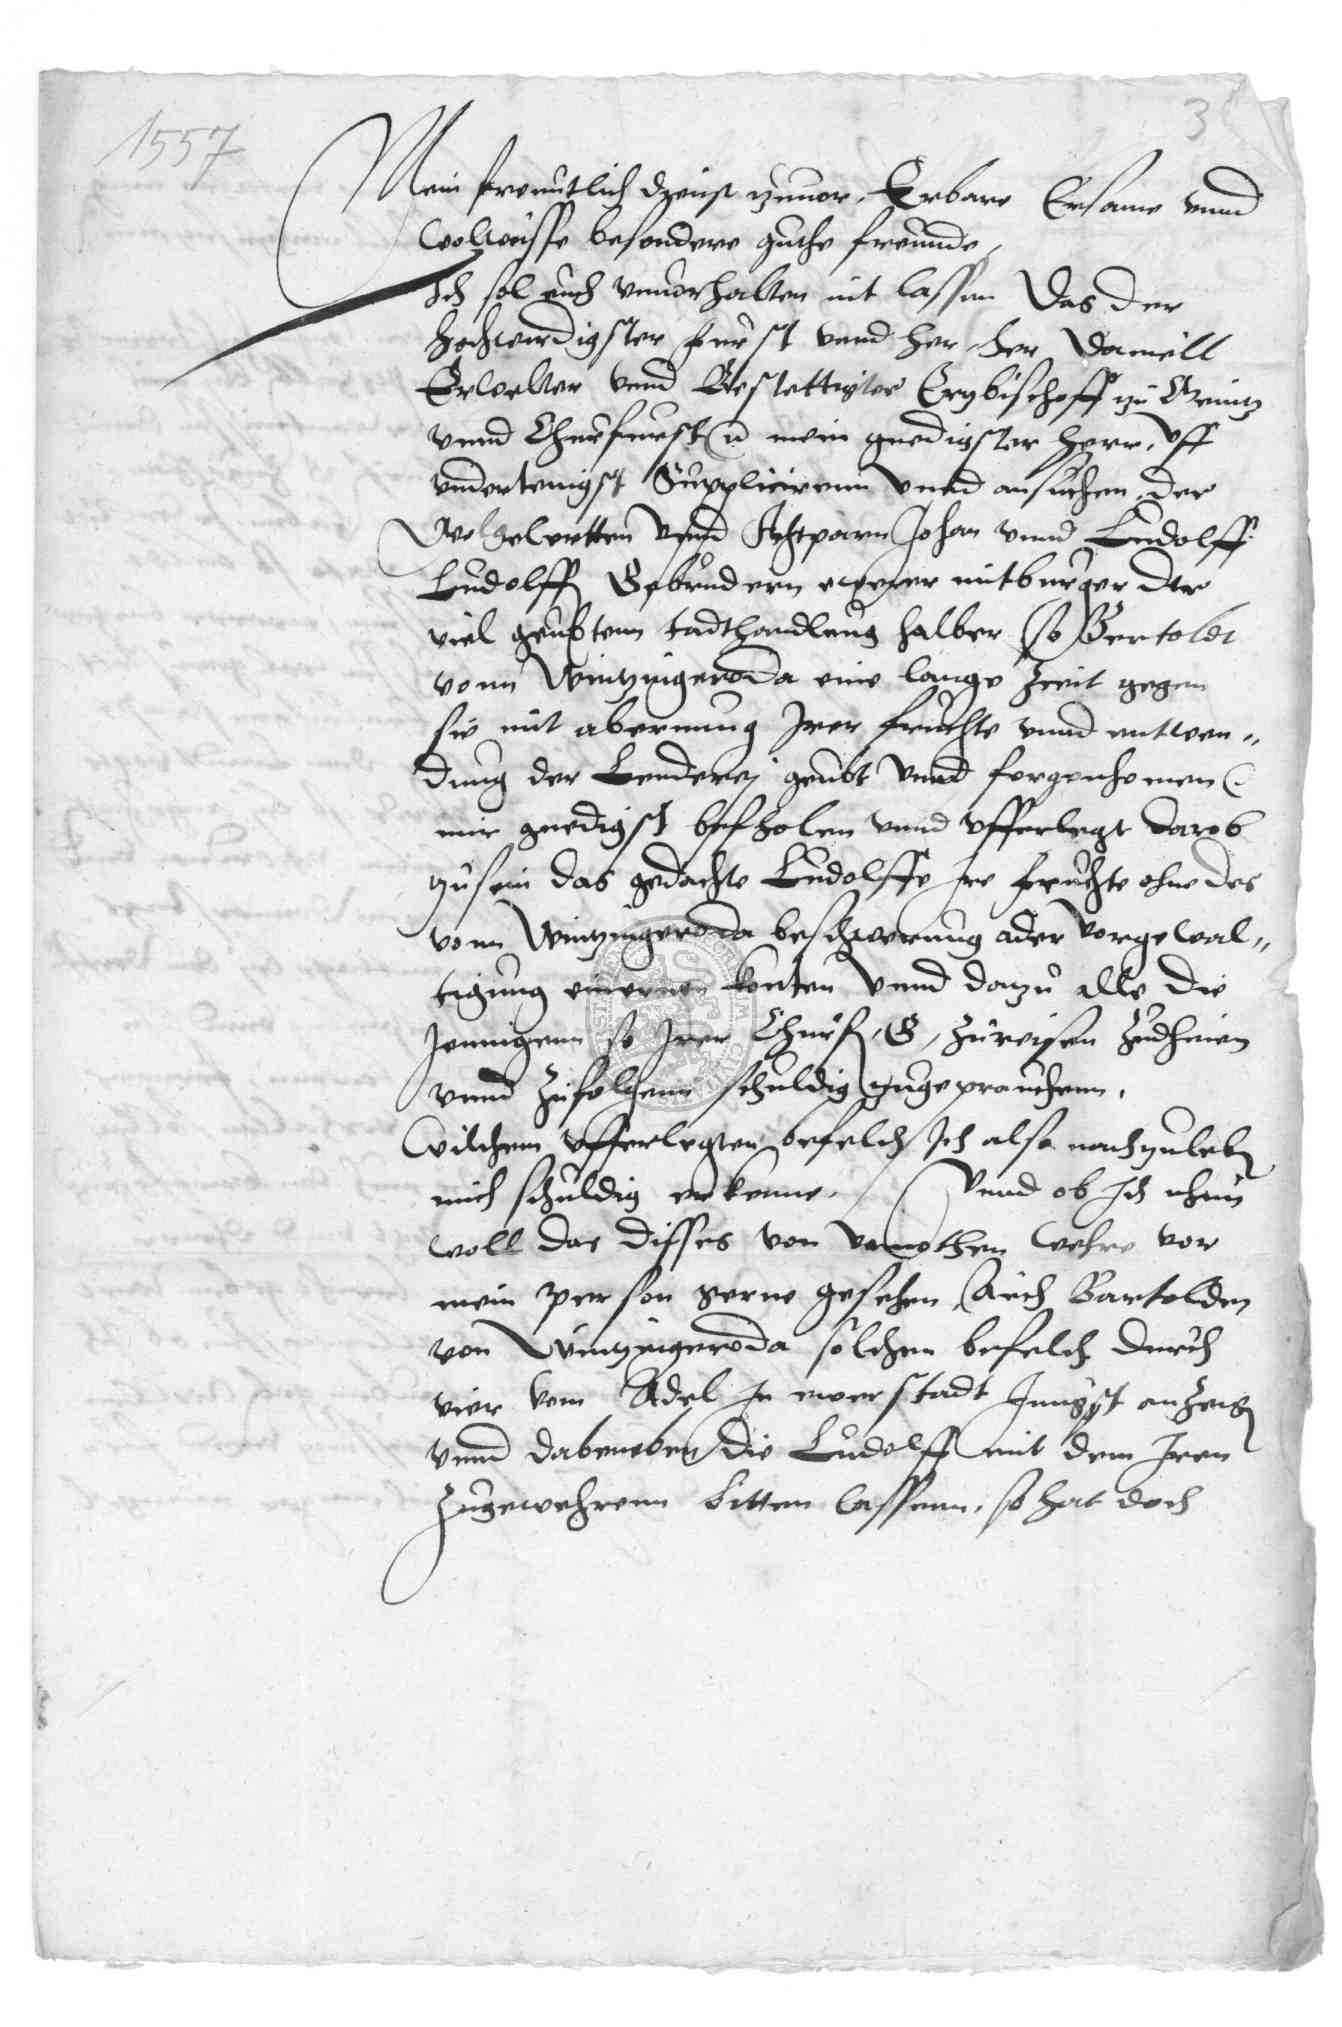 1557
3
Mein freuntlich dienst zuuor, Erbare Ersame vnnd
wolweisse besondere guthe freunde,
Ich sol euch vnuorhalten nit lassen Das der
hochwirdigster furst vnnd her, her Daniell
Erwelter vnnd Bestettigter Ertzbischoff zu Meintz
vnnd Churfurst mein gnedigster herr, vff
vndertenigst Suppliciren vnnd ansuchen, der
Wolgelertten vnnd Achtparn Johan vnnd Ludolff
Ludolff Gebrudern ewerer mitburger der
viel geubtenn tadthandlung halber so Bertoldt
vonn Wintzingeroda eine lange Zeit gegen
sie mit abernung Irer fruchte vnnd entwen„
dung der Lenderej geubt vnnd forgenhomen
mir gnedigst befholen vnnd vfferlegt darob
zusein das gedachte Ludolffe Ire fruchte ohne des
vonn Wintzingeroda beschwerung ader vorgewal„
tigung einernen konten vnnd dazu alle die
Jennigenn so Irer Churf. G. zureisen zudhinen
vnnd zufolgenn schuldig zugeprauchenn,
Wilchem vfferlegten befelch Ich also nachzuleben
mich schuldig erkenne. Vnnd ob Ich nhun
woll das disses von vnnothen wehre vor
mein person gerne gesehen, Auch Bartolden
von Wintzingeroda solchen befelch durch
vier vom Adel In ewer stadt Jungst anzeigen
vnnd dabeneben die Ludolff mit dem Iren
zugewehrenn bitten lassenn, so hat doch